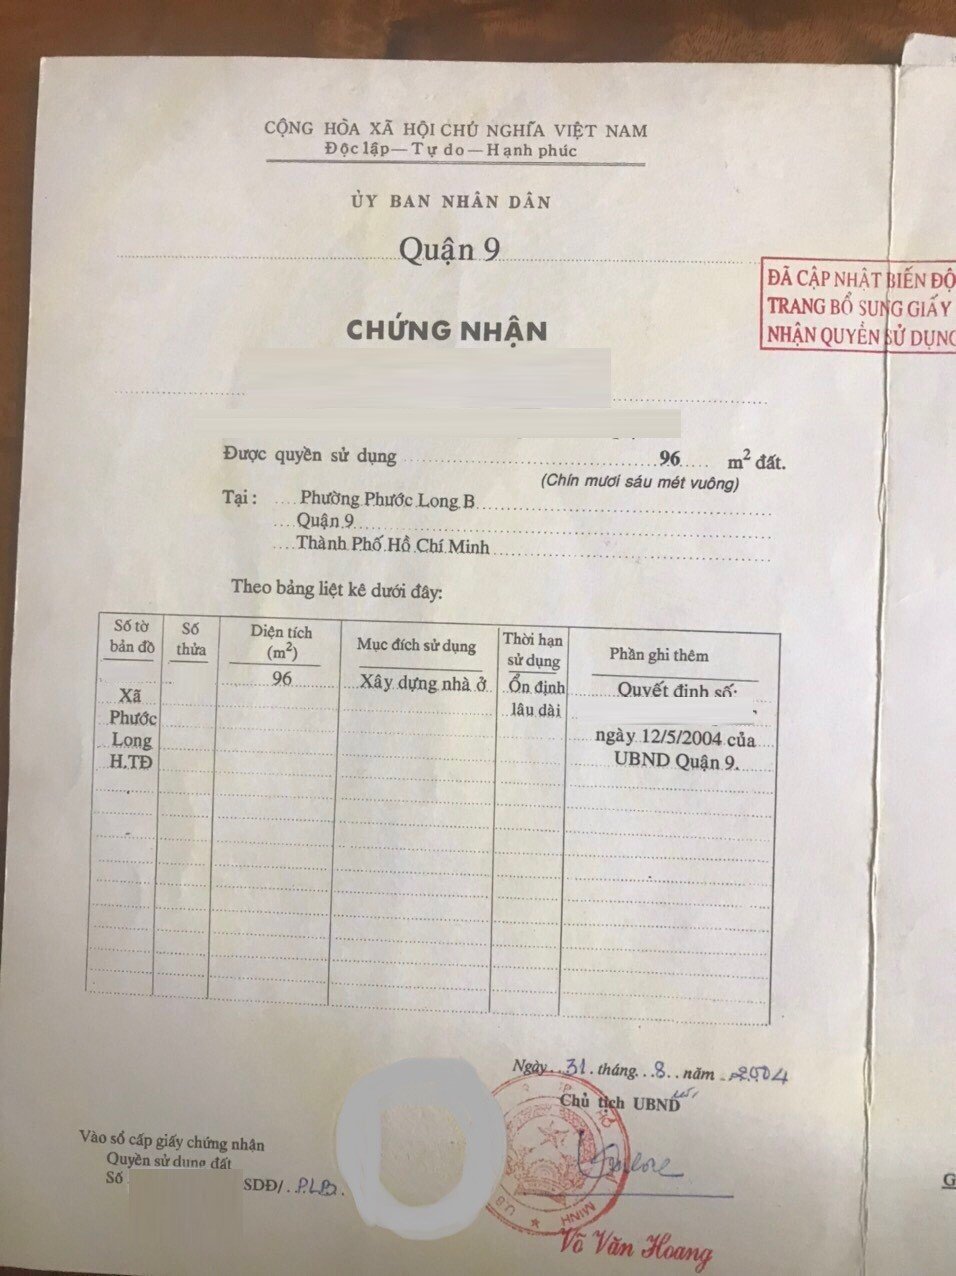 CỘNG HÒA XÃ HỘI CHỦ NGHĨA VIỆT NAM
Độc lập — Tự do — Hạnh phúc
ỦY BAN NHÂN DÂN
Quận 9
ĐÃ CẬP NHẬT BIẾN ĐỘ
TRANG BỔ SUNG GIẤY
NHẬN QUYỀN SỬ DỤNG
CHỨNG NHẬN
Được quyền sử dụng 96 m² đất.
(Chín mươi sáu mét vuông)
Tại : Phường Phước Long B
Quận 9
Thành Phố Hồ Chí Minh
Theo bảng liệt kê dưới đây:
Số tờ bản đồ Số thửa Diện tích (m²) Mục đích sử dụng Thời hạn sử dụng Phần ghi thêm
96 Xây dựng nhà ở Ổn định Quyết định số:
Xã lâu dài
Phước
Long ngày 12/5/2004 của
H.TĐ UBND Quận 9.
Ngày 31 tháng 8 năm 2004
Chủ tịch UBND
Vào sổ cấp giấy chứng nhận
Quyền sử dụng đất
Số SDĐ/ P.LB.
U.B
MINH
Võ Văn Hoang
G